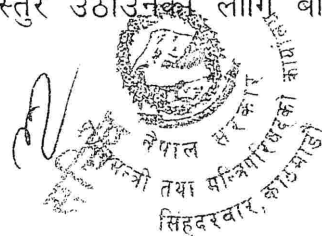 स्तुर उठाउनका लागि बा
नेपाल सरकार
मन्त्री तथा मन्त्रिपरिषद्को कार्यालय
सिंहदरवार, काठमाडौं